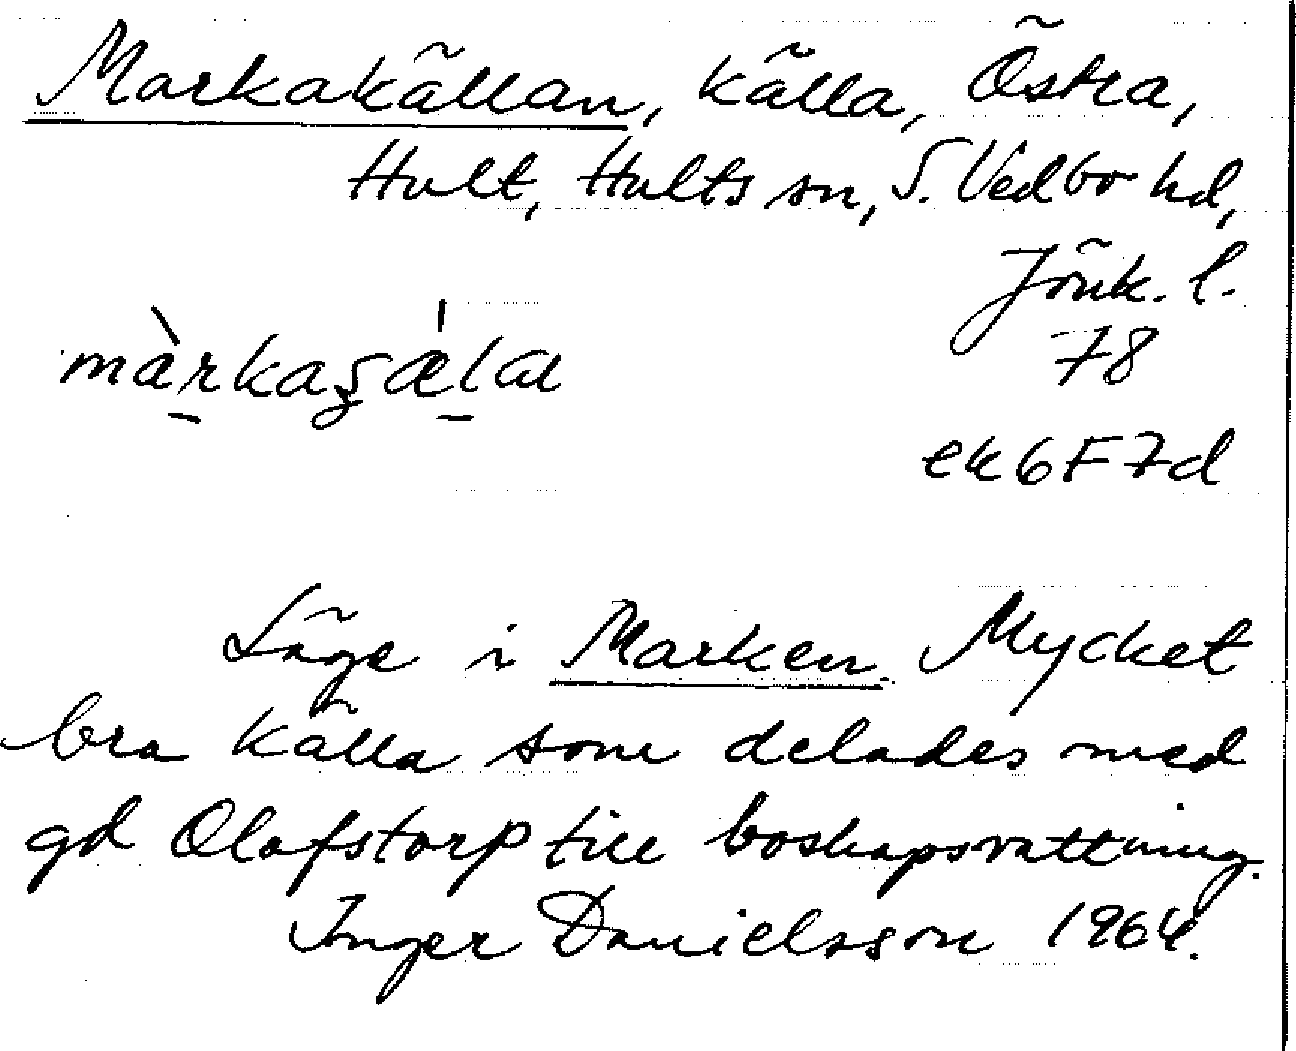 Markakällan, källa, Östra,
Hult, Hults sn, S. Vedbo hd,
Jönk. l.
78
ek 6F7d
Läge i Marken. Mycket
bra källa som delades med
gd Olofstorp till boskapsvattning.
Inger Danielsson 1964.